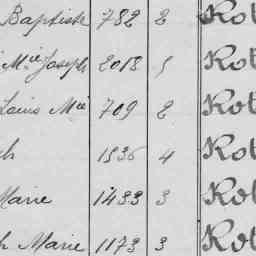 Baptiste 782 2 Rot
Mie Joseph 2018 5 Rot
Louis Mie 709 2 Rot
ph 1536 4 Rot
Marie 1433 3 Rot
h Marie 1173 3 Rot